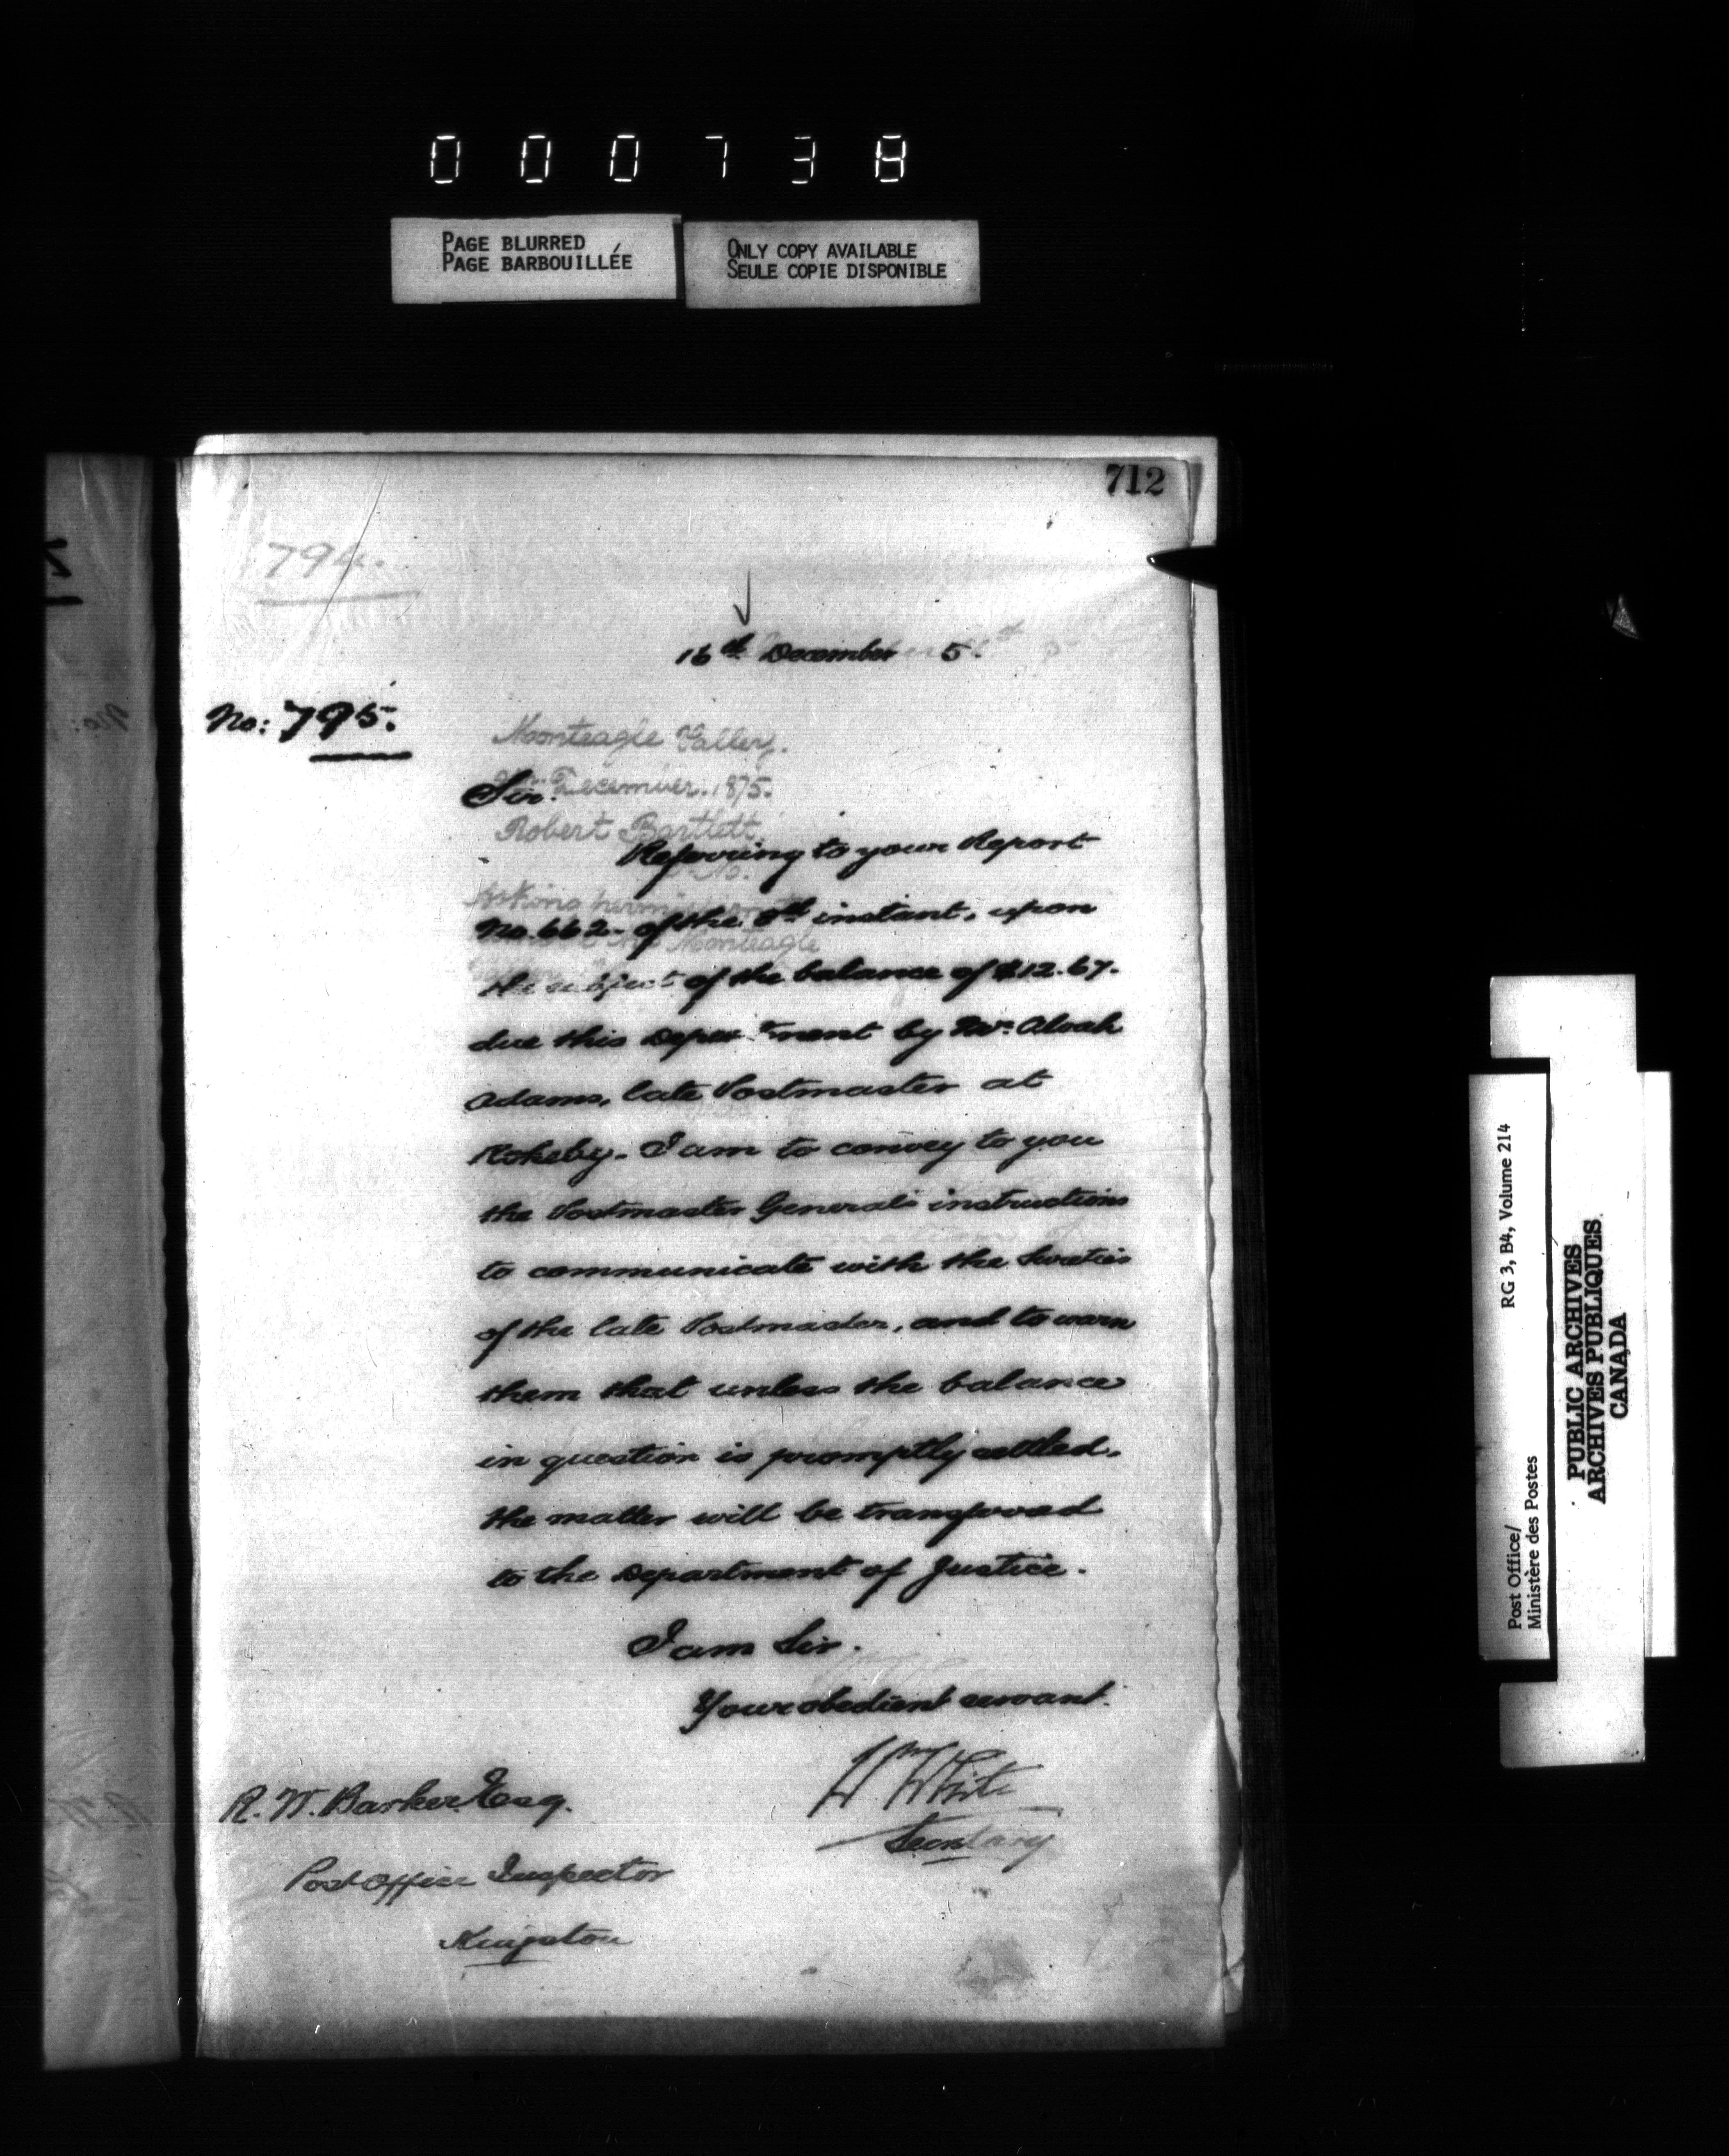 000738
PAGE BLURRED
PAGE BARBOUILLÉE
ONLY COPY AVAILABLE
SEULE COPIE DISPONIBLE
712
794.
16th December 5.
No: 795.
Monteagle Valley.
December. 1875.
Sir.
Robert Bartlett
Referring to your Report
No. 662- of the 8th instant, upon
Monteagle
the subject of the balance of $12.67.
due this Department by Mr. Alvah
Adams, late Postmaster at
Rokeby. I am to convey to you
the Postmaster General's instructions
to communicate with the Sureties
of the late Postmaster, and to warn
them that unless the balance
in question is promptly settled.
the matter will be transferred
to the Department of Justice.
I am Sir.
Your obedient servant.
Wm White
Secretary
R. W. Barker Esq.
Post Office Inspector
Kingston
RG 3, B4, Volume 214
Post Office/
Ministère des Postes
PUBLIC ARCHIVES
ARCHIVES PUBLIQUES
CANADA